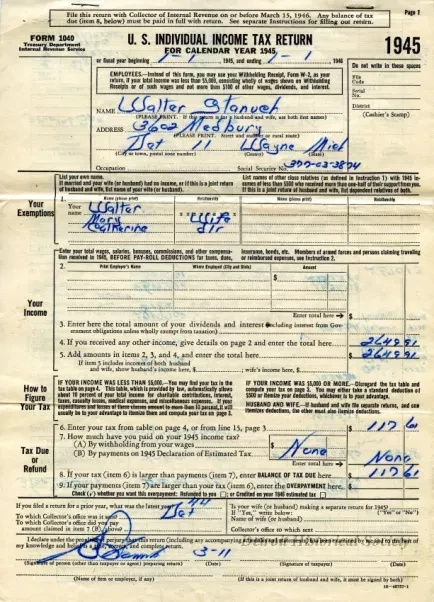 Page 1
File this return with Collector of Internal Revenue on or before March 15, 1946. Any balance of tax
due (item 8, below) must be paid in full with return. See separate Instructions for filling out return.
FORM 1040
Treasury Department
Internal Revenue Service
U. S. INDIVIDUAL INCOME TAX RETURN
FOR CALENDAR YEAR 1945,
1945
or fiscal year beginning 1-1, 1945, and ending 1-1, 1946
Do not write in these spaces
EMPLOYEES—Instead of this form, you may use your Withholding Receipt, Form W-2, as your
return, if your total income was less than $5,000, consisting wholly of wages shown on Withholding
Receipts or of such wages and not more than $100 of other wages, dividends, and interest.
File
Code
Serial
No.
District
(Cashier's Stamp)
NAME Walter
(PLEASE PRINT. If this return is for a husband and wife, use both first names)
ADDRESS 3602 Medbury
(PLEASE PRINT. Street and number or rural route)
Det 11 Wayne Mich
(City or town, postal zone number) (County) (State)
Occupation
Social Security No.
Your
Exemptions
List your own name.
If married and your wife (or husband) had no income, or if this is a joint return
of husband and wife, list name of your wife (or husband).
List names of other close relatives (as defined in Instruction 1) with 1945 in-
comes of less than $500 who received more than one-half of their support from you.
If this is a joint return of husband and wife, list dependent relatives of both.
1. Name (please print) Relationship Name (please print) Relationship
Your name Walter
Mary Wife
Catherine
Your
Income
Enter your total wages, salaries, bonuses, commissions, and other compensa-
tion received in 1945, BEFORE PAY-ROLL DEDUCTIONS for taxes, dues,
insurance, bonds, etc. Members of armed forces and persons claiming traveling
or reimbursed expenses, see Instruction 2.
2. Print Employer's Name Where Employed (City and State) Amount
$
Enter total here → $
3. Enter here the total amount of your dividends and interest (including interest from Gov-
ernment obligations unless wholly exempt from taxation)
4. If you received any other income, give details on page 2 and enter the total here 2649 91
5. Add amounts in items 2, 3, and 4, and enter the total here $ 2649 91
If item 5 includes incomes of both husband
and wife, show husband's income here, $ ; wife's income here, $
How to
Figure
Your Tax
IF YOUR INCOME WAS LESS THAN $5,000.—You may find your tax in the
tax table on page 4. This table, which is provided by law, automatically allows
about 10 percent of your total income for charitable contributions, interest,
taxes, casualty losses, medical expenses, and miscellaneous expenses. If your
expenditures and losses of these classes amount to more than 10 percent, it will
usually be to your advantage to itemize them and compute your tax on page 3.
IF YOUR INCOME WAS $5,000 OR MORE.—Disregard the tax table and
compute your tax on page 3. You may either take a standard deduction of
$500 or itemize your deductions, whichever is to your advantage.
HUSBAND AND WIFE.—If husband and wife file separate returns, and one
itemizes deductions, the other must also itemize deductions.
Tax Due
or
Refund
6. Enter your tax from table on page 4, or from line 15, page 3 $ 117 61
7. How much have you paid on your 1945 income tax?
(A) By withholding from your wages $
(B) By payments on 1945 Declaration of Estimated Tax None
Enter total here → None
8. If your tax (item 6) is larger than payments (item 7), enter BALANCE OF TAX DUE here $ 117 61
9. If your payments (item 7) are larger than your tax (item 6), enter the OVERPAYMENT here $
Check (✓) whether you want this overpayment: Refunded to you ☐; or Credited on your 1946 estimated tax ☐
If you filed a return for a prior year, what was the latest year? 44
To which Collector's office was it sent? Det
To which Collector's office did you pay
amount claimed in item 7 (B), above?
Is your wife (or husband) making a separate return for 1945?
("Yes" or "No")
If "Yes," write below:
Name of wife (or husband)
Collector's office to which sent
I declare under the penalties of perjury that this return (including any accompanying
my knowledge and belief is a true, correct, and complete return.
3-11
(Signature of person (other than taxpayer or agent) preparing return) (Date) (Signature of taxpayer) (Date)
(Name of firm or employer, if any)
(If this is a joint return of husband and wife, it must be signed by both)